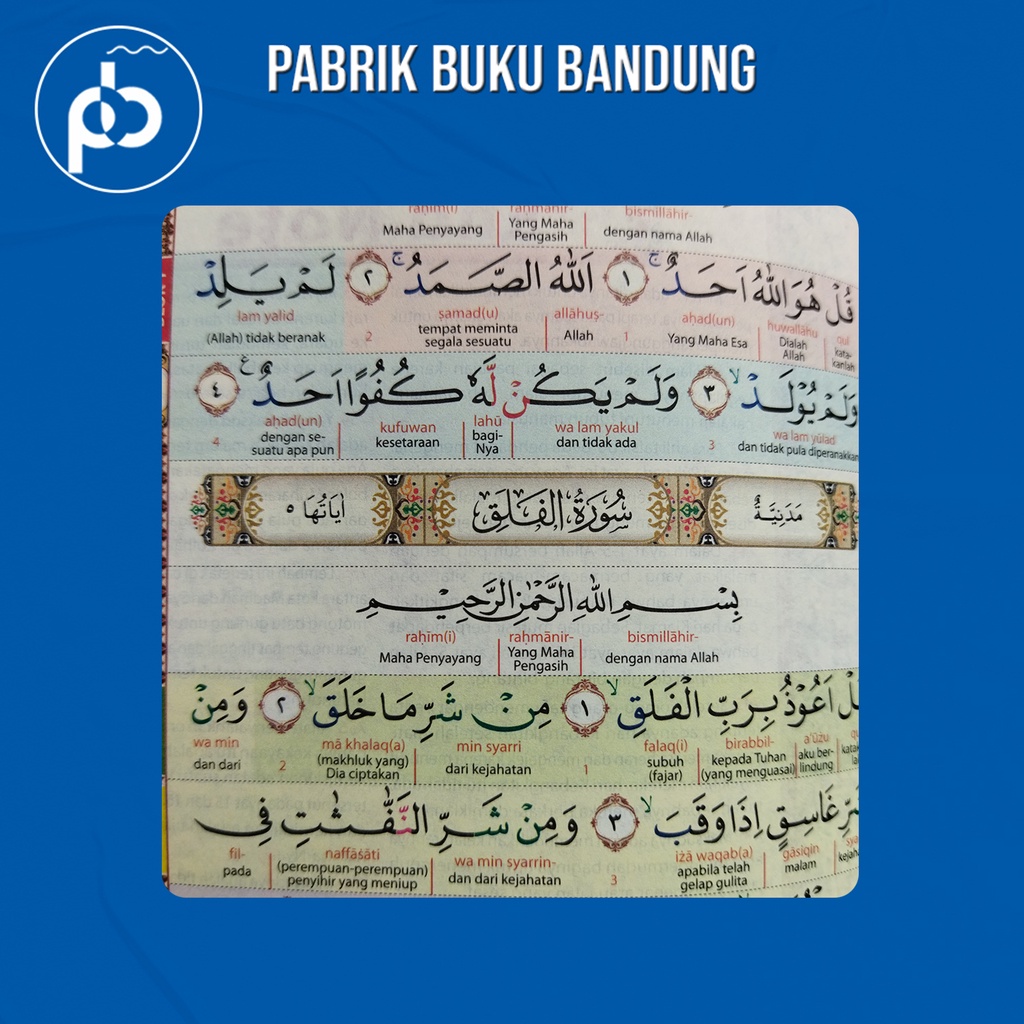 pb
PABRIK BUKU BANDUNG
bismillāhir- raḥmānir- raḥīm(i)
dengan nama Allah
Yang Maha Pengasih
Maha Penyayang
قُلْ هُوَ اللّٰهُ اَحَدٌۚ ١ اَللّٰهُ الصَّمَدُۚ ٢ لَمْ يَلِدْ
qul
kata-
kanlah
huwallāhu
Dialah
Allah
aḥad(un)
Yang Maha Esa
1
allāhuṣ-
Allah
ṣamad(u)
tempat meminta
segala sesuatu
2
lam yalid
(Allah) tidak beranak
وَلَمْ يُوْلَدْۙ ٣ وَلَمْ يَكُنْ لَّهٗ كُفُوًا اَحَدٌࣖ ٤
wa lam yūlad
dan tidak pula diperanakkan
3
wa lam yakul
dan tidak ada
lahū
bagi-
Nya
kufuwan
kesetaraan
aḥad(un)
dengan se-
suatu apa pun
4
مَدَنِيَّةٌ سُوْرَةُ الْفَلَقِ اٰيَاتُهَا ٥
بِسْمِ اللّٰهِ الرَّحْمٰنِ الرَّحِيْمِ
bismillāhir-
dengan nama Allah
raḥmānir-
Yang Maha
Pengasih
raḥīm(i)
Maha Penyayang
اَعُوْذُ بِرَبِّ الْفَلَقِۙ ١ مِنْ شَرِّ مَا خَلَقَۙ ٢ وَمِنْ
a'ūżu
aku ber-
lindung
birabbil-
kepada Tuhan
(yang menguasai)
falaq(i)
subuh
(fajar)
1
min syarri
dari kejahatan
mā khalaq(a)
(makhluk yang)
Dia ciptakan
2
wa min
dan dari
غَاسِقٍ اِذَا وَقَبَۙ ٣ وَمِنْ شَرِّ النَّفّٰثٰتِ فِى
gāsiqin
malam
iżā waqab(a)
apabila telah
gelap gulita
3
wa min syarrin-
dan dari kejahatan
naffāṡāti
(perempuan-perempuan)
penyihir yang meniup
fil-
pada